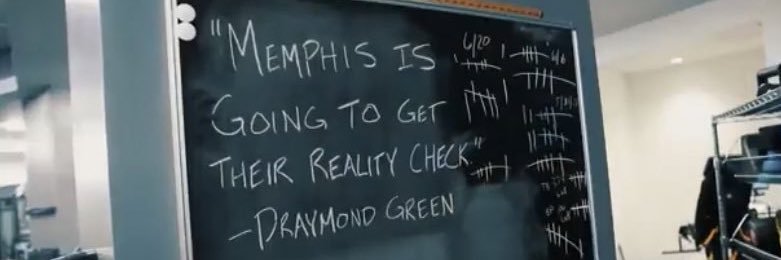 "MEMPHIS IS
GOING TO GET
THEIR REALITY CHECK"
-DRAYMOND GREEN
6/20
6/6